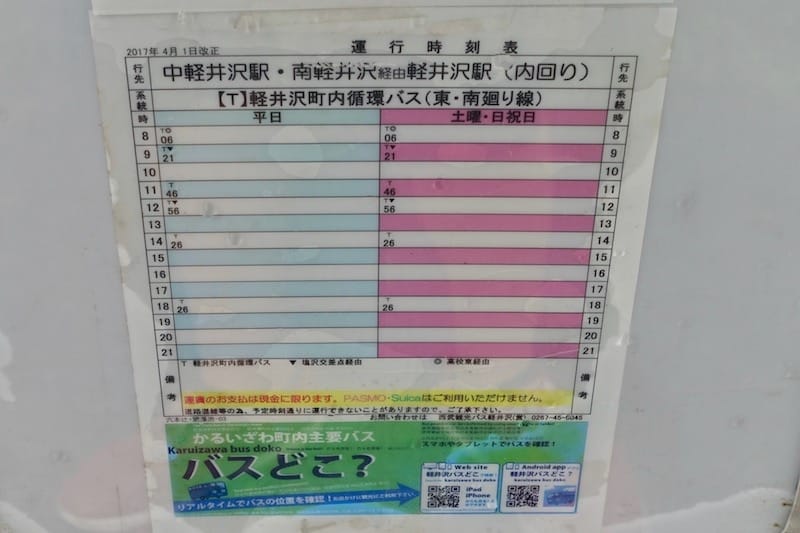 運行時刻表
2017年 4月 1日改正
行先 中軽井沢駅・南軽井沢経由軽井沢駅（内回り） 行先
系統 【T】軽井沢町内循環バス（東・南廻り線） 系統
時 平日 土曜・日祝日 時
8 T◎ 06 T◎ 06 8
9 T▼ 21 T▼ 21 9
10 10
11 T 46 T 46 11
12 T▼ 56 T▼ 56 12
13 13
14 T 26 T 26 14
15 15
16 16
17 17
18 T 26 T 26 18
19 19
20 20
21 21
T 軽井沢町内循環バス ▼ 塩沢交差点経由 ◎ 高校東経由
備考 備考
運賃のお支払は現金に限ります。PASMO・Suicaはご利用いただけません。
道路混雑等の為、予定時刻通りに運行できないことがありますので、ご了承下さい。
お問い合わせは 西武観光バス軽井沢(営) 0267-45-5045
かるいざわ町内主要バス
Karuizawa bus doko
バスどこ？
リアルタイムでバスの位置を確認！
スマホやタブレットでバスを確認！
Web site
軽井沢バスどこ
karuizawa bus doko
iPad
iPhone
Android app
軽井沢バスどこ？
karuizawa bus doko